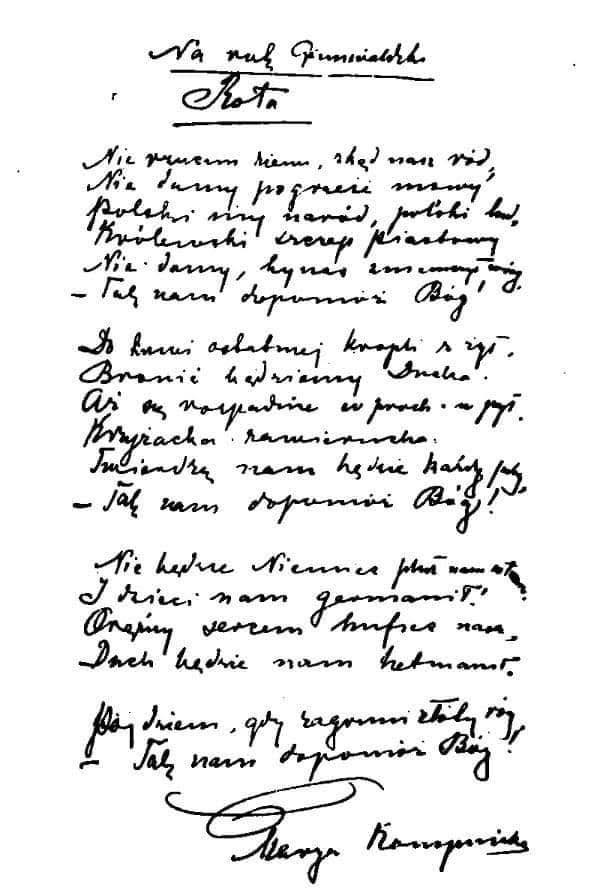 Na rok Grunwaldzki
Rota
Nie rzucim ziemi, skąd nasz ród,
Nie damy pogrześć mowy!
Polski my naród, polski lud,
Królewski szczep Piastowy
Nie damy, by nas zniemczył wróg.
– Tak nam dopomóż Bóg!
Do krwi ostatniej kropli z żył.
Bronić będziemy Ducha.
Aż się rozpadnie w proch i w pył.
Krzyżacka zawierucha.
Twierdzą nam będzie każdy próg,
– Tak nam dopomóż Bóg!
Nie będzie Niemiec pluł nam w twarz
I dzieci nam germanił!
Orężny sercem hufiec nasz,
Duch będzie nam hetmanił.
Pójdziem, gdy zagrzmi złoty róg,
– Tak nam dopomóż Bóg!
Marya Konopnicka